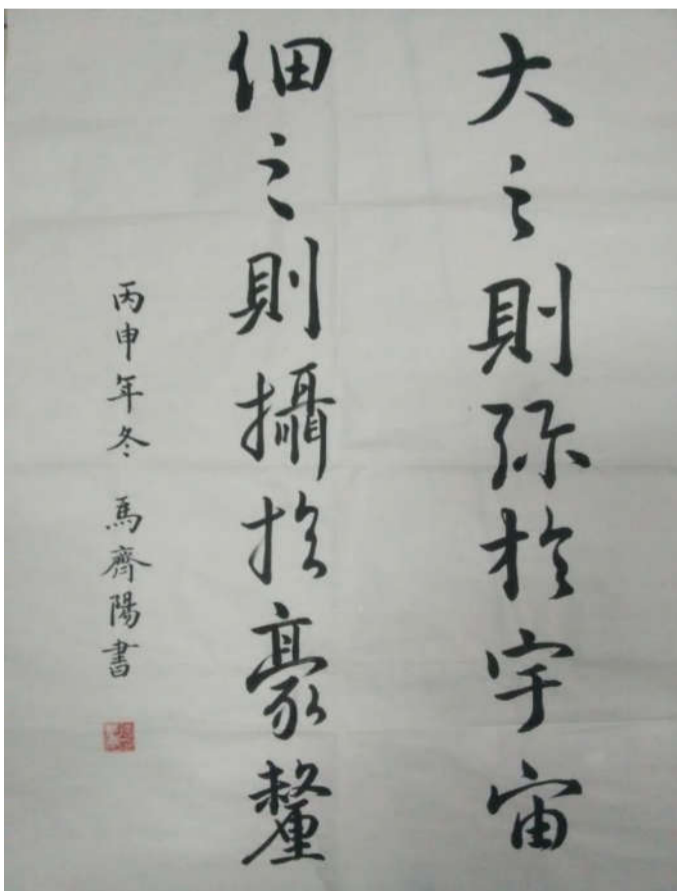 大之則弥於宇宙
細之則攝於豪釐
丙申年冬 馬齊陽書